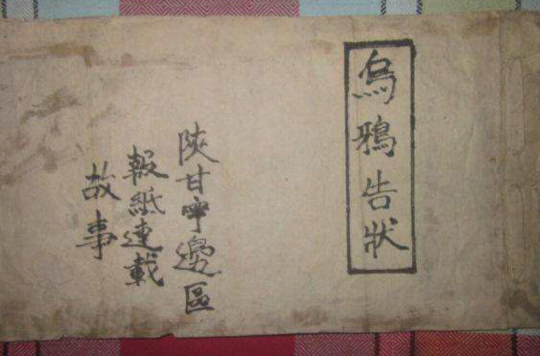 烏鴉告狀
陝甘寧邊區
報紙連載
故事